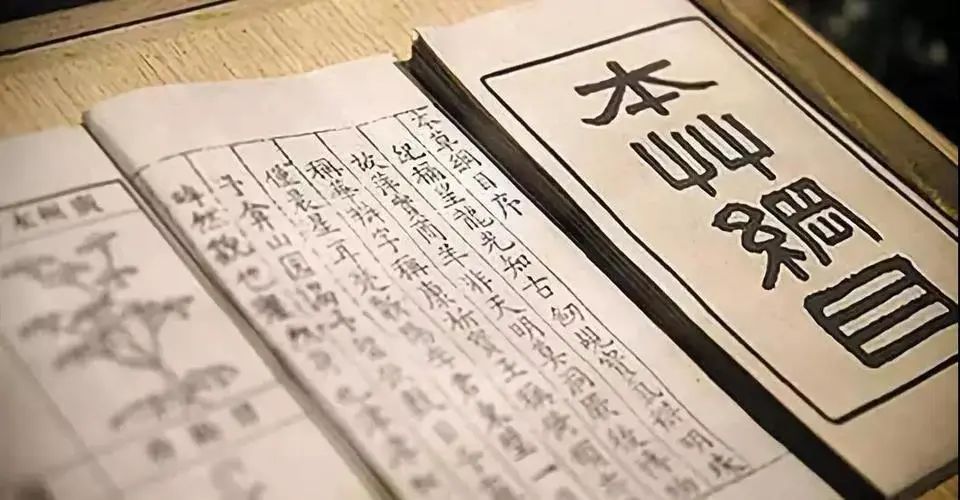 本艸綱目
本草綱目序
紀稱望龍光知古劒覘寳氣辨明珠
故萍實商羊非天明莫洞厥後博物
稱華辨字稱康析寳玉稱倚頓
僅晨星耳楚蘄陽李君東璧一
予弇山園謁予留飲
睟然貌也癯然